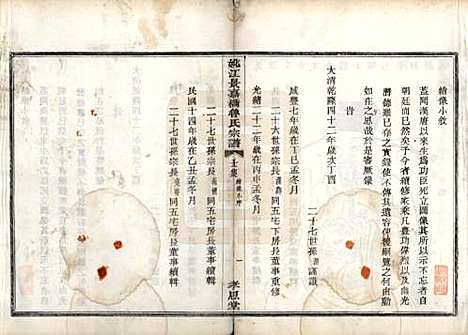 繪像小敘
蓋聞漢唐以來生為功臣死立圖像其所以示不忘者自
朝廷而已然矣于今者續修家乘凡豊功偉烈以及幽光
潛德雖已存之實錄使不傳其遺容俾後嗣覽之何由動
如在之思哉於是審厥象
旹
大清乾隆四十二年歲次丁酉
二十七世孫 謹識
咸豐七年歲在丁巳孟冬月
二十六世孫宗長 同五宅下房長董事重修
光緒二十二年歲在丙申孟冬月
二十七世孫宗長 同五宅房長董事續輯
民國十四年孟冬月
二十七世孫宗長 同五宅房長董事續輯
姚江景嘉橋魯氏宗譜
一
孝思堂